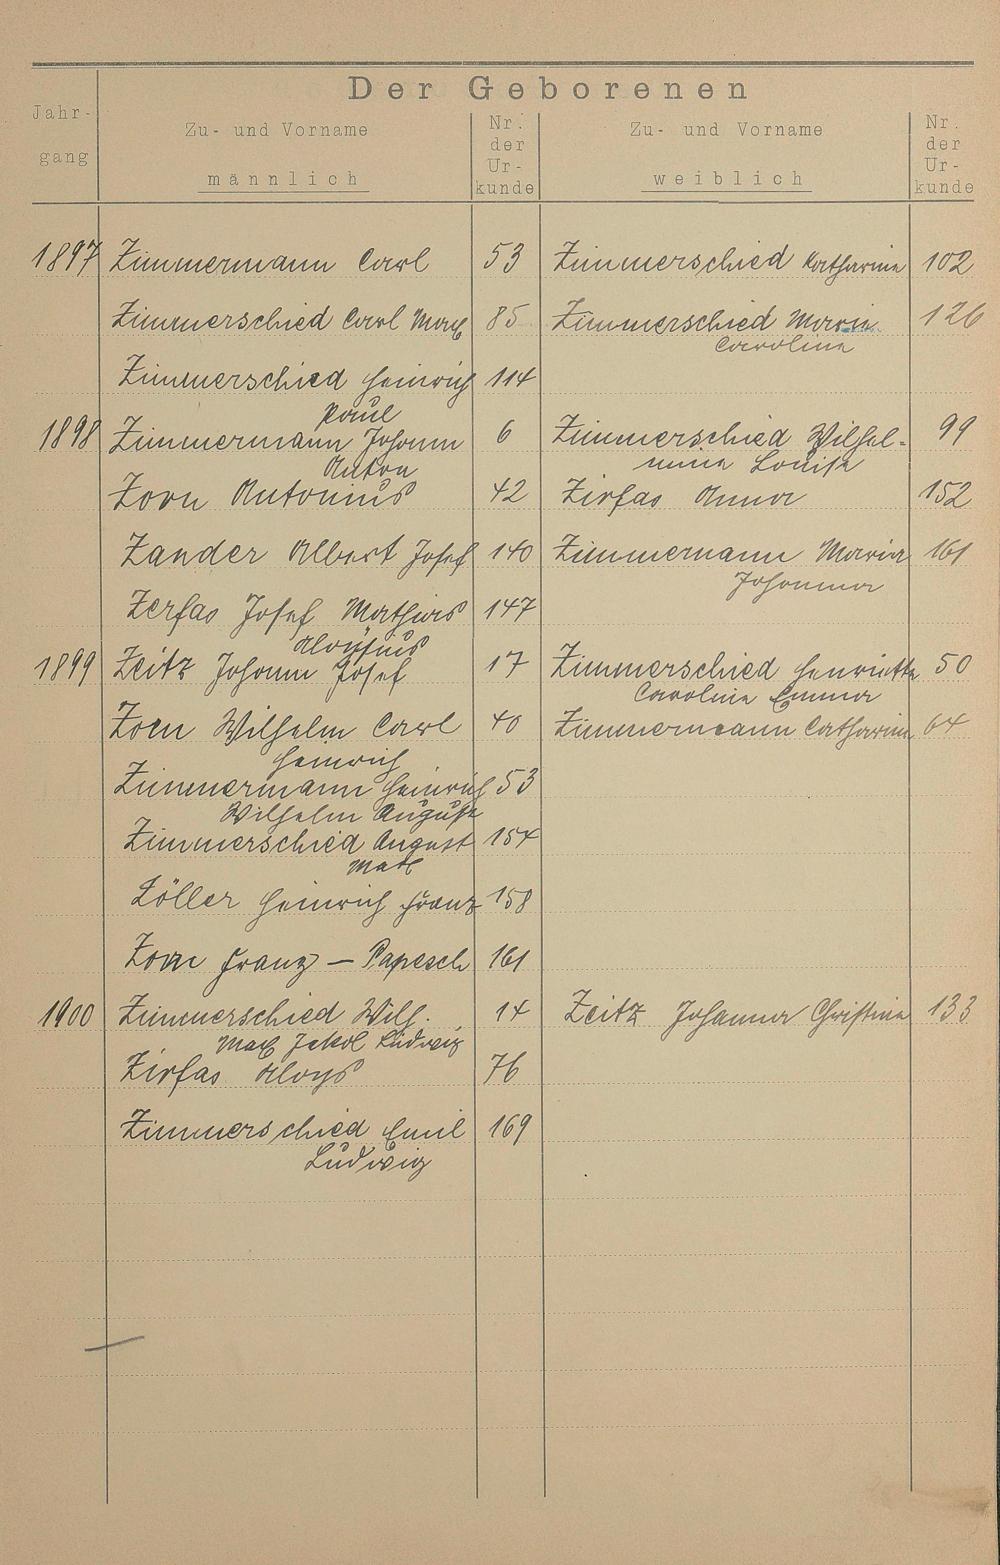 Der Geborenen
Jahr-
gang
Zu- und Vorname
männlich
Nr.
der
Ur-
kunde
Zu- und Vorname
weiblich
Nr.
der
Ur-
kunde
1897 Zimmermann Carl 53 Zimmerschied Katharina 102
Zimmerschied Carl Max 85 Zimmerschied Maria 126
Caroline
Zimmerschied Heinrich 114
Paul
1898 Zimmermann Johann 6 Zimmerschied Wilhel- 99
Anton mine Louise
Zorn Antonius 42 Zirfas Anna 152
Zander Albert Josef 140 Zimmermann Maria 161
Johanna
Zerfas Josef Mathias 147
Aloysius
1899 Zeitz Johann Josef 17 Zimmerschied Henriette 50
Caroline Emma
Zorn Wilhelm Carl 40 Zimmermann Catharina 64
Heinrich
Zimmermann Heinrich 53
Wilhelm August
Zimmerschied August 154
Max
Zöller Heinrich Franz 158
Zorn Franz – Papesch 161
1900 Zimmerschied Wilh. 14 Zeitz Johanna Christina 133
Max Jakob Ludwig
Zirfas Aloys 76
Zimmerschied Emil 169
Ludwig